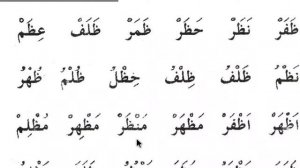 ظَفَرْ نَظَرْ حَظَرْ ظَمَرْ ظَلَفْ عِظَمْ
نَظْمُ ظَلْفُ ظِلْفُ خِظْلُ ظُلْمُ ظُهْرُ
اَظْهَرْ اَظْفَرْ مَظْهَرْ مَنْظَرْ مَظْهِرْ مُظْلِمْ